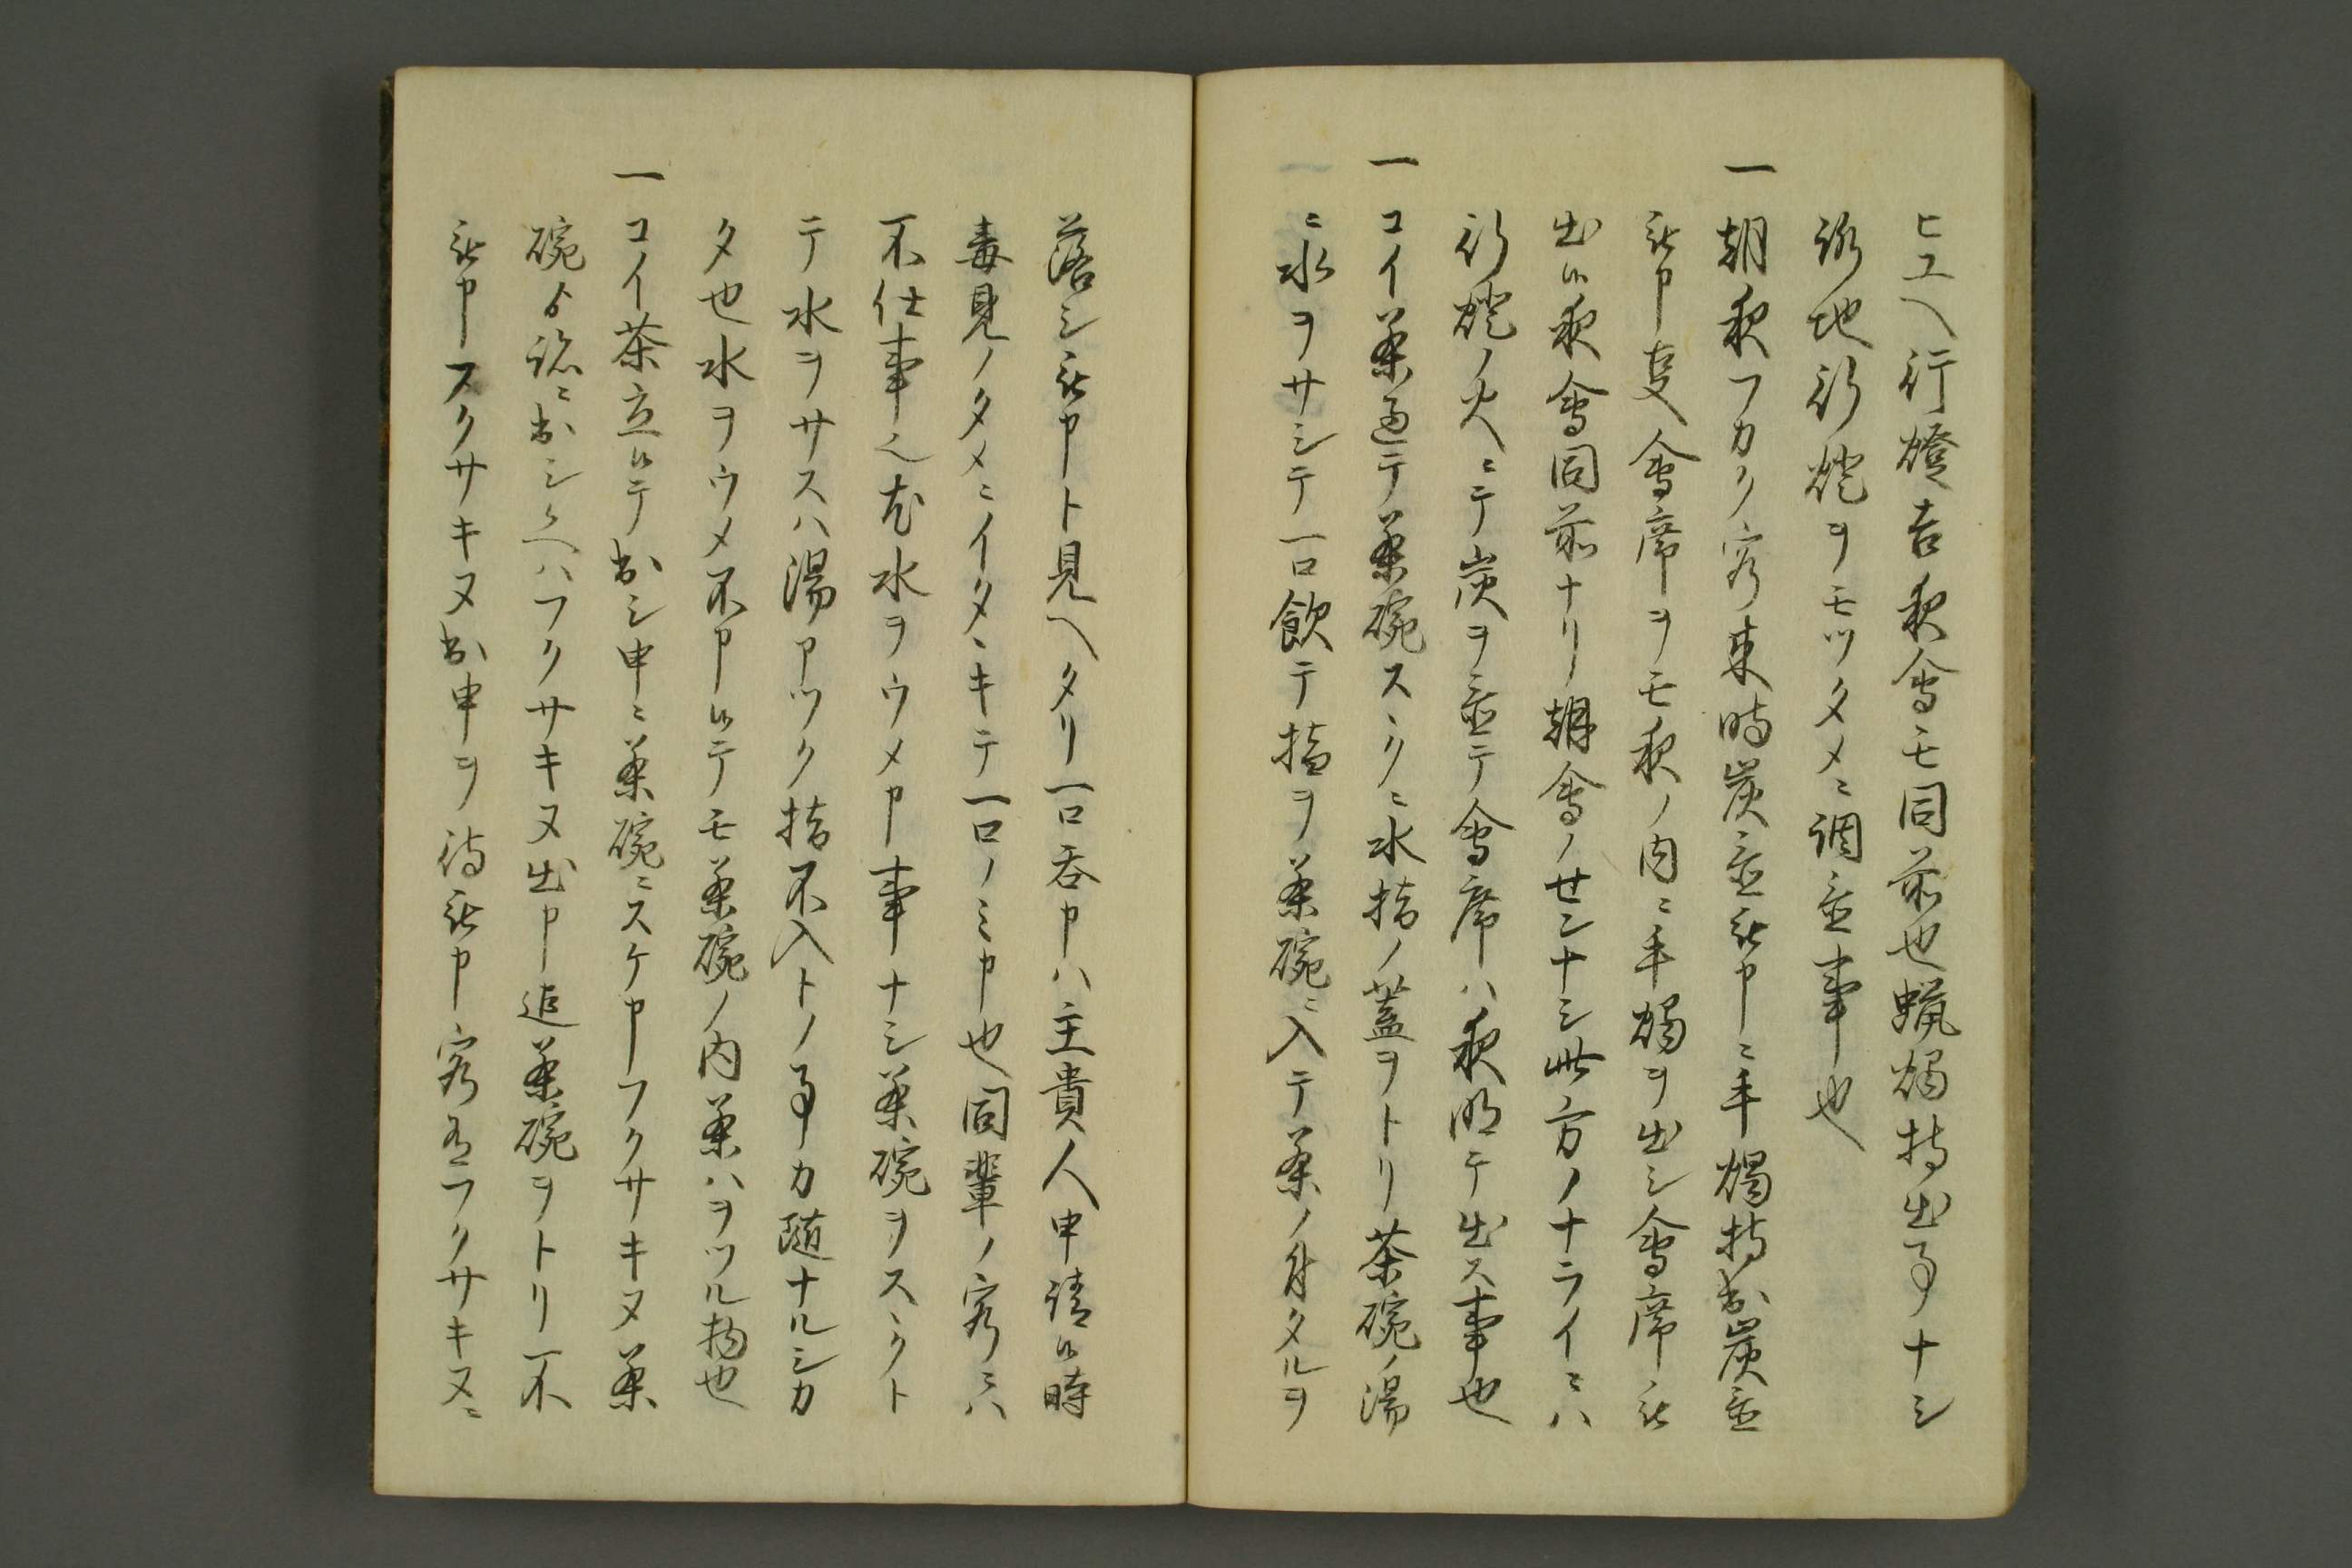 ヒユヘ行燈吉夜會モ同前也蝋燭持出事ナシ
路地行燈ヲモツタメニ調置事也
一朝夜フカク客来時炭置被申ニ手燭持出炭置
被申夏會席ヲモ夜ノ内ニ手燭ヲ出シ會席被
出候夜會同前ナリ朝會ノせンナシ此方ノナライニハ
行燈ノ火ニテ炭ヲ置テ會席ハ夜明テ出ス事也
一コイ茶過テ茶碗スヽクニ水指ノ蓋ヲトリ茶碗ノ湯
ニ水ヲサシテ一口飲テ指ヲ茶碗ニ入テ茶ノ付タルヲ
落シ被申ト見ヘタリ一口呑申ハ主貴人申請候時
毒見ノタメニイタヽキテ一口ノミ申也同輩ノ客ニハ
不仕事也尤水ヲウメ申事ナシ茶碗ヲスヽクト
テ水ヲサスハ湯アツク指不入トノ事カ随ナルシカ
タ也水ヲウメ不申候テモ茶碗ノ内茶ハヲツル物也
一コイ茶立候テ出シ申ニ茶碗ニスケ申フクサキヌ茶
碗ヨ諒ニ出シ候ヘハフクサキヌ出申迄茶碗ヲトリ不
被申スクサキヌ出申ヲ待被申客有フクサキヌニ